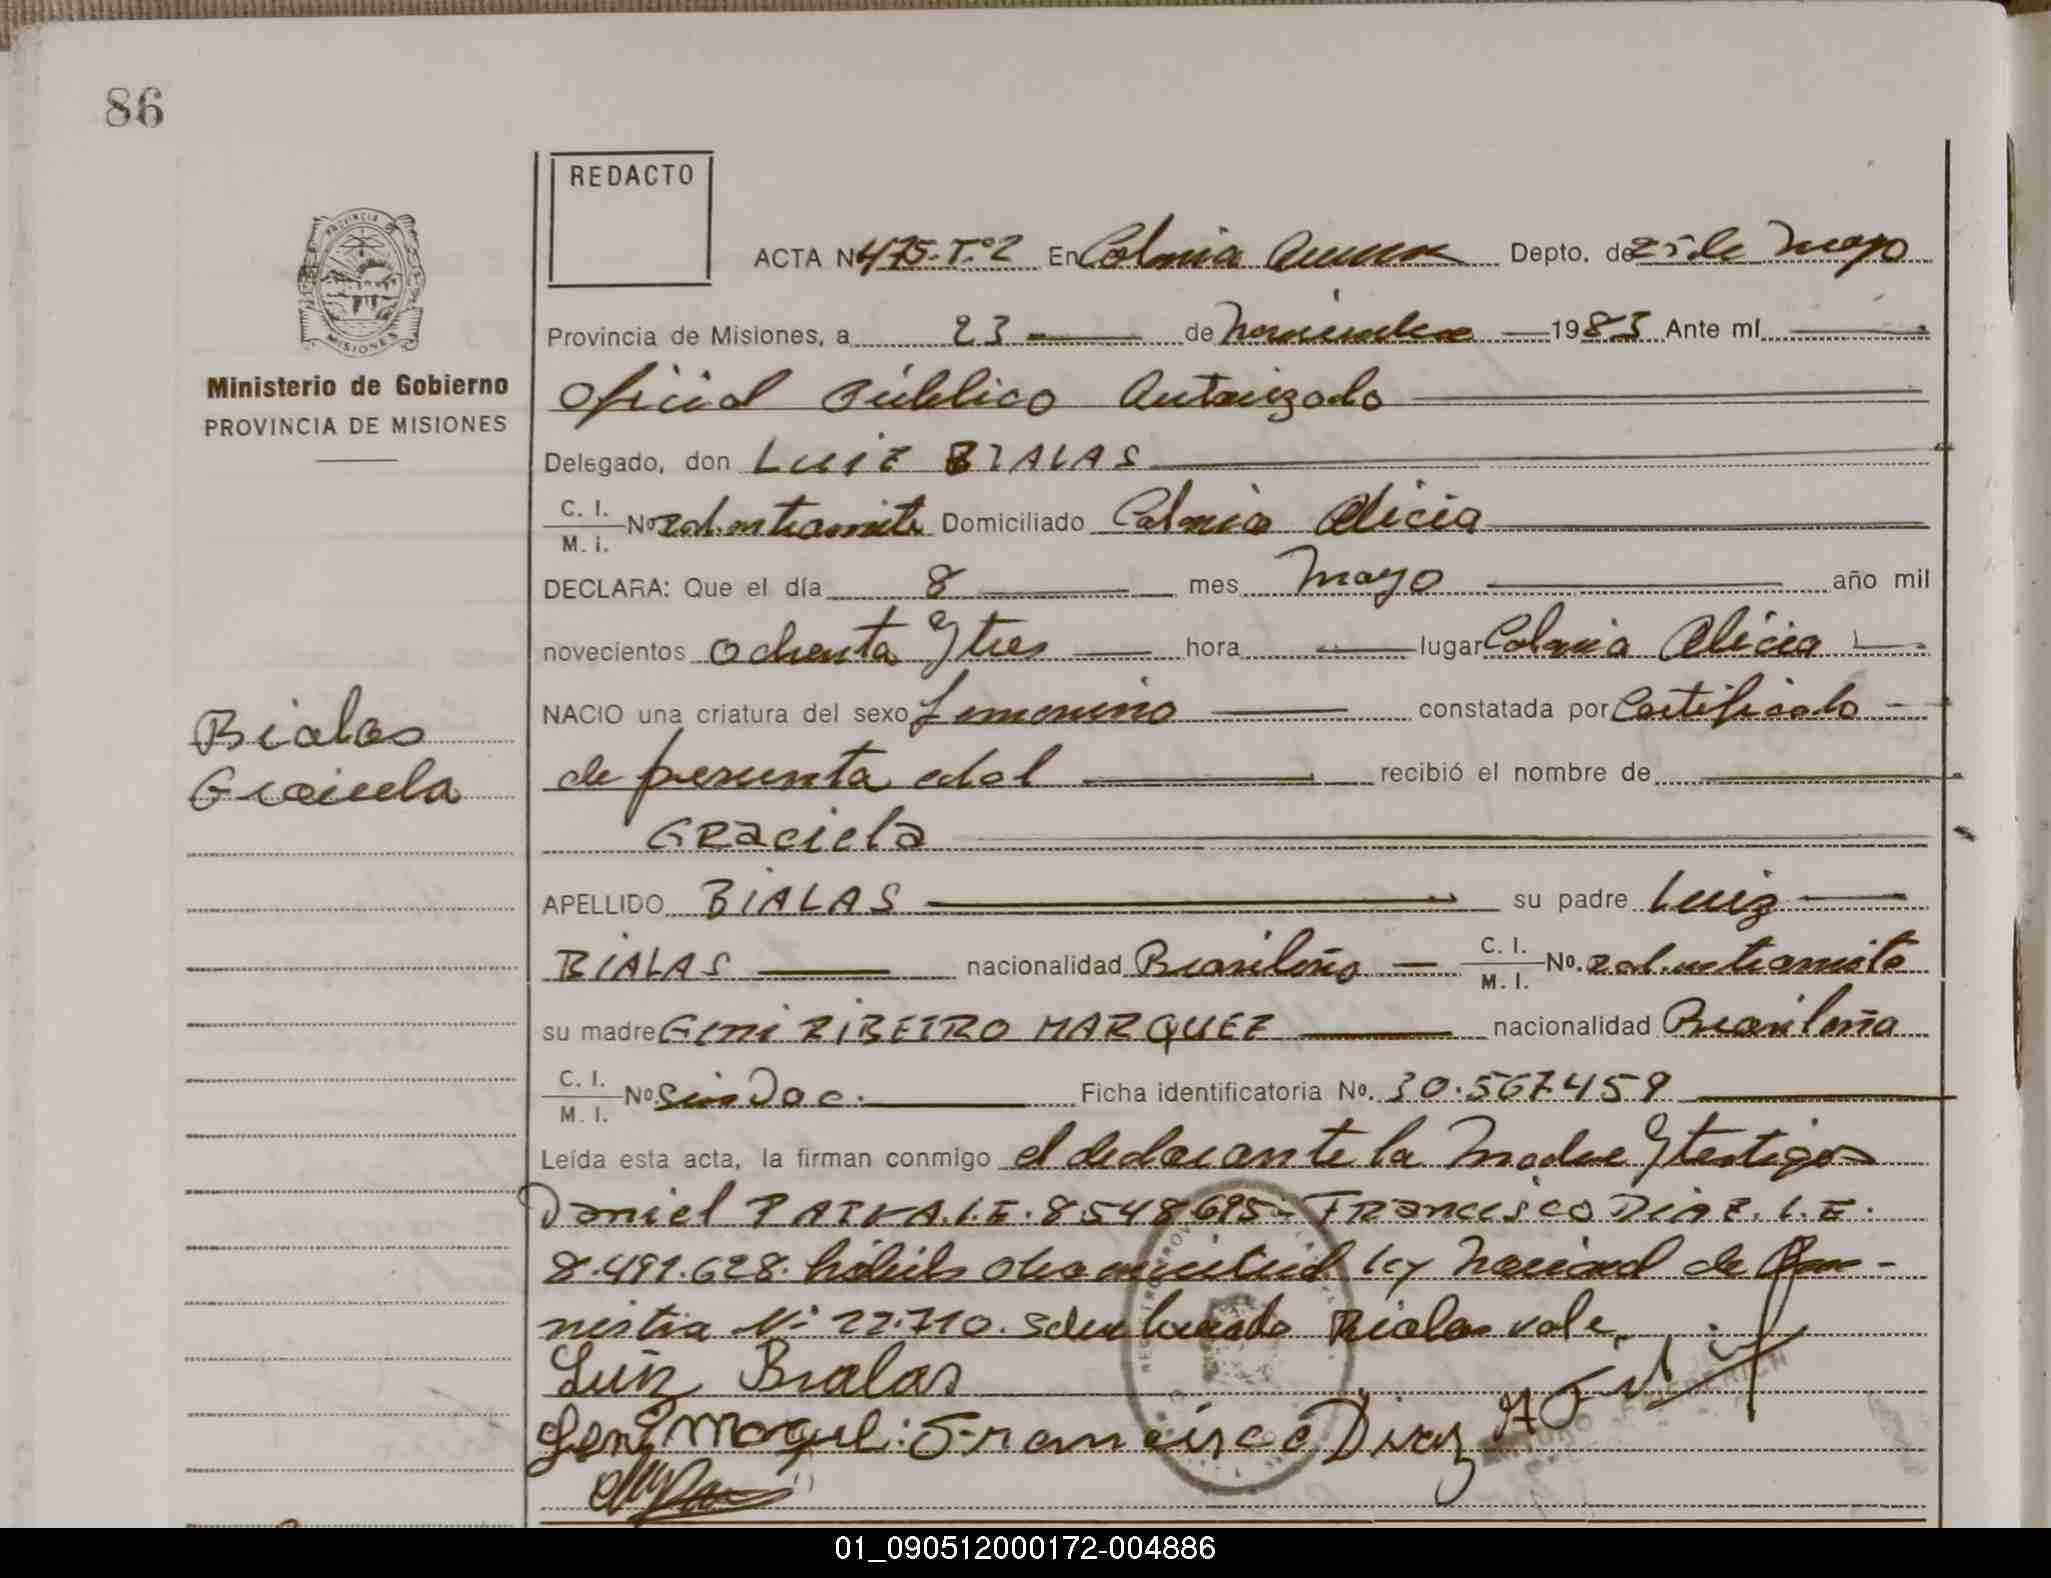 86
REDACTO
ACTA Nº 475-Tº2 En Colonia Aurora Depto. de 25 de Mayo
Provincia de Misiones, a 23 de Noviembre 1983 Ante mí
Oficial Público Autorizado
Ministerio de Gobierno
PROVINCIA DE MISIONES
Delegado, don LUIZ BIALAS
C. I.
M. I. Nº rad. en tramite Domiciliado Colonia Alicia
DECLARA: Que el día 8 mes Mayo año mil
novecientos ochenta y tres hora lugar Colonia Alicia
Bialas
Graciela
NACIO una criatura del sexo femenino constatada por Certificado
de presunta edad recibió el nombre de
GRaciela
APELLIDO BIALAS su padre Luiz
BIALAS nacionalidad Brasileño C. I.
M. I. Nº. rad. en tramite
su madre Geni RIBEIRO MARQUEZ nacionalidad Brasileña
C. I.
M. I. Nº. sin Doc. Ficha identificatoria Nº. 30.567.459
Leída esta acta, la firman conmigo el declarante la Madre y testigos
Daniel PAIVA. L.E. 8548695- FRancisco DIAZ. L.E.
8.491.628. hábiles ley Nacional de Am-
nistia Nº 22.710. Sobre borrado Bialas vale.
Luiz Bialas
Francisco Diaz
PROVINCIA
MISIONES
01_090512000172-004886